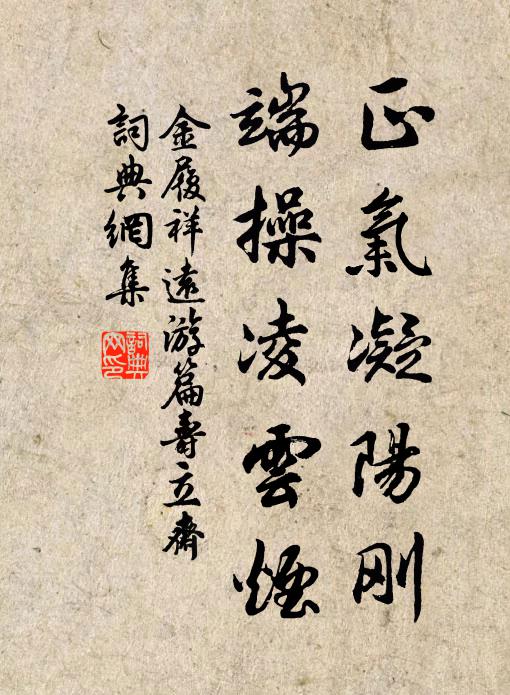 正氣凝陽剛
端操凌雲煙
金履祥遠游篇壽立齋
詞典網集
詞典
网印